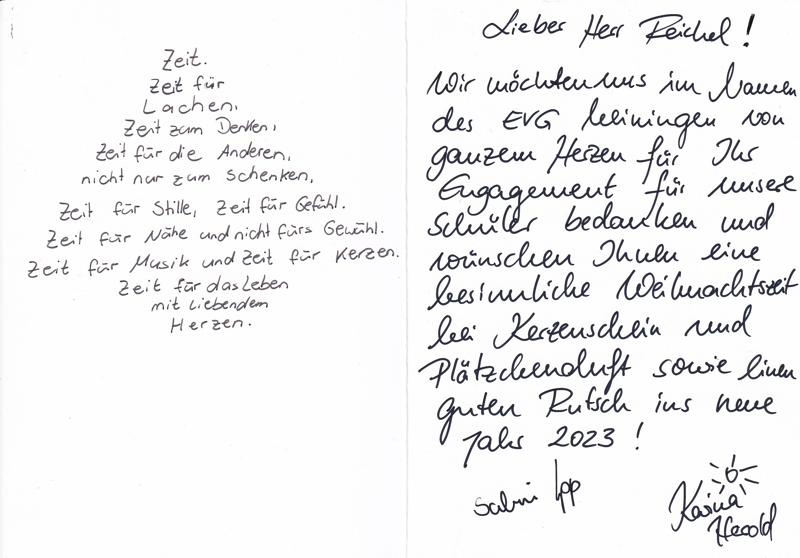 Zeit.
Zeit für
Lachen,
Zeit zum Denken,
Zeit für die Anderen,
nicht nur zum Schenken,
Zeit für Stille, Zeit für Gefühl.
Zeit für Nähe und nicht fürs Gewühl.
Zeit für Musik und Zeit für Kerzen.
Zeit für das Leben
mit liebendem
Herzen.
Lieber Herr Reichel!
Wir möchten uns im Namen
des EVG Meiningen von
ganzem Herzen für Ihr
Engagement für unsere
Schüler bedanken und
wünschen Ihnen eine
besinnliche Weihnachtszeit
bei Kerzenschein und
Plätzchenduft sowie einen
guten Rutsch ins neue
Jahr 2023!
Karina
Herold